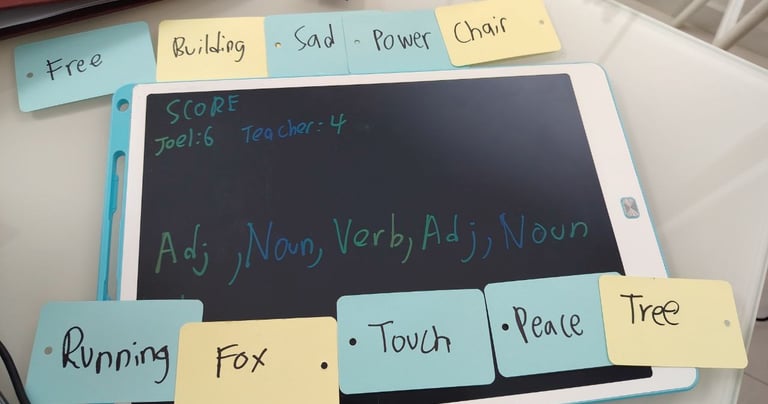 Free Building Sad Power Chair
SCORE
Joel:6 Teacher:4
Adj, Noun, Verb, Adj, Noun
Running Fox Touch Peace Tree